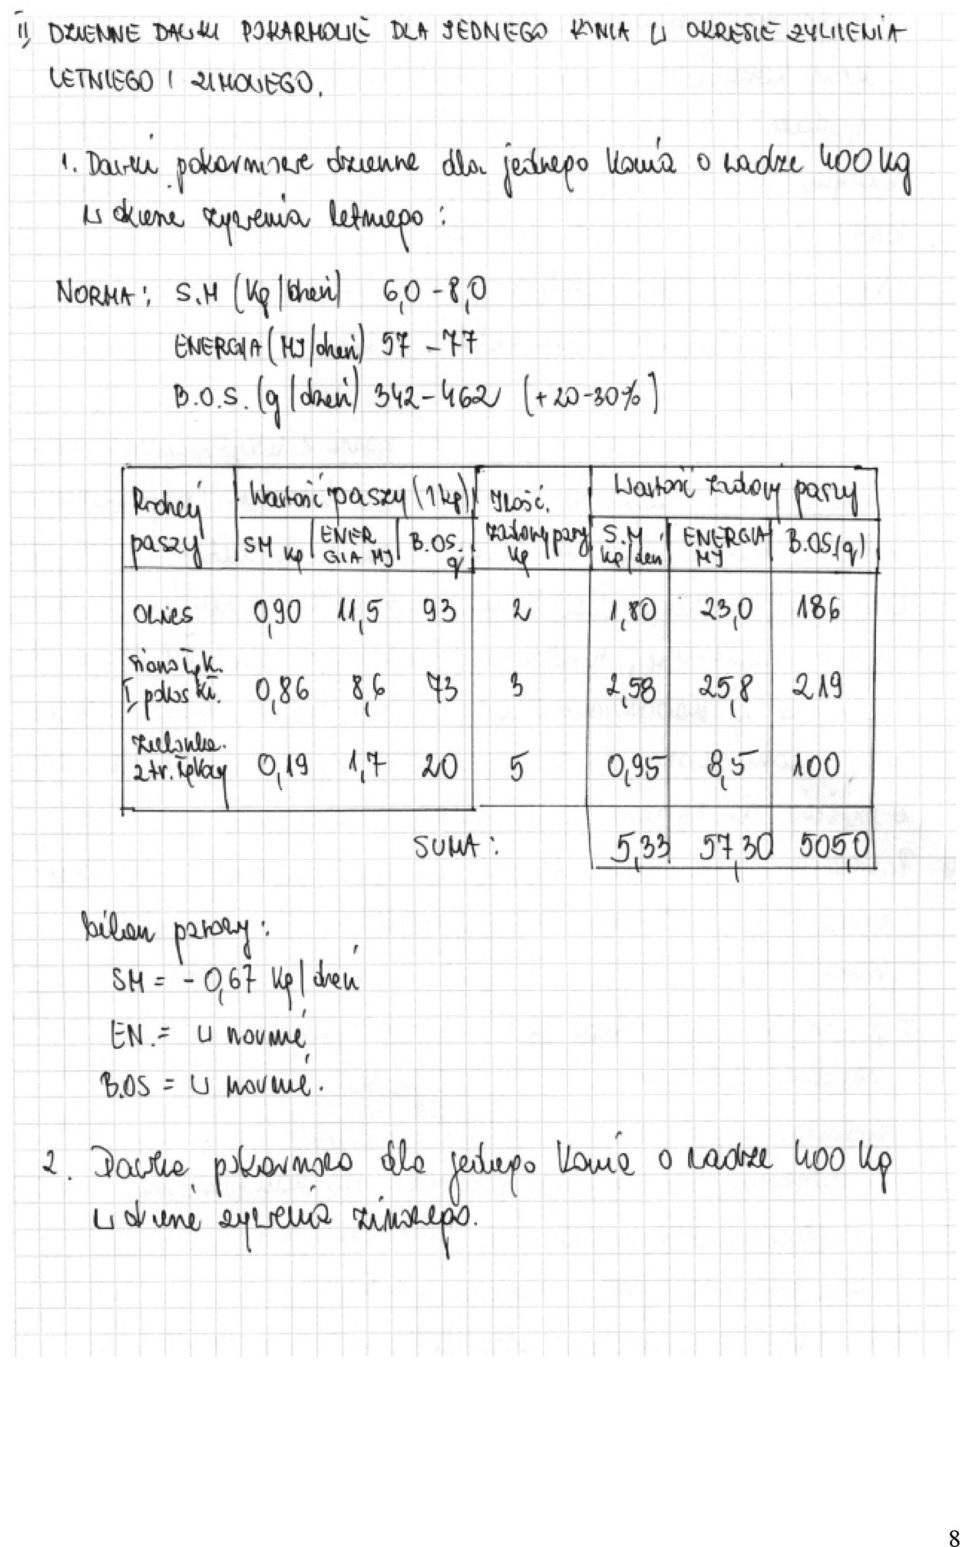 II, DZIENNE DAWKI POKARMOWE DLA JEDNEGO KONIA W OKRESIE ŻYWIENIA
LETNIEGO I ZIMOWEGO.
1. Dawki pokarmowe dzienne dla jednego konia o wadze 400 kg
w okresie żywienia letniego:
NORMA: S.M (kg/dzień) 6,0 - 8,0
ENERGIA (MJ/dzień) 57 - 77
B.O.S. (g/dzień) 342 - 462 (+20-30%)
Rodzaj paszy | Wartość paszy (1 kg) | Ilość zadawanej paszy kg | Wartość zadawanej paszy
SM kg | ENERGIA MJ | B.OS. g | S.M kg/dzień | ENERGIA MJ | B.OS (g)
Owies 0,90 11,5 93 2 1,80 23,0 186
siano łąk.
I pokos kł. 0,86 8,6 73 3 2,58 25,8 219
Zielonka
z tr. łąkowy 0,19 1,7 20 5 0,95 8,5 100
SUMA: 5,33 57,30 505,0
bilans paszowy:
SM = - 0,67 kg/dzień
EN. = w normie
B.OS = w normie.
2. Dawka pokarmowa dla jednego konia o wadze 400 kg
w okresie żywienia zimowego.
8